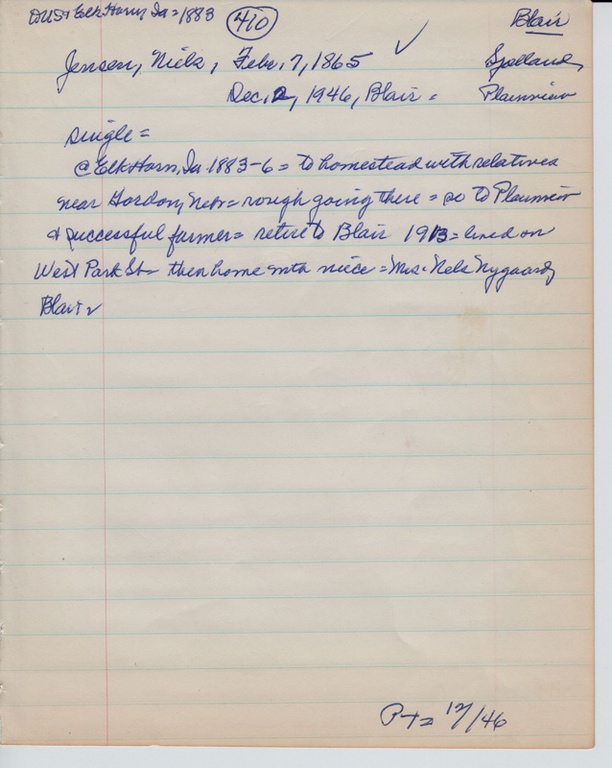 DUS & Elk Horn, Ia = 1883 410 Blair
Jensen, Niels, Febr. 7, 1865 ✓ Sjælland,
Dec. 2, 1946, Blair = Plainview
single =
@ Elk Horn, Ia. 1883-6 = to homestead with relatives
near Gordon, Nebr = rough going there = so to Plainview
& successful farmer = retire to Blair 1913 = lived on
West Park St - then home with niece = Mrs. Nels Nygaard,
Blair
P-T = 12/46